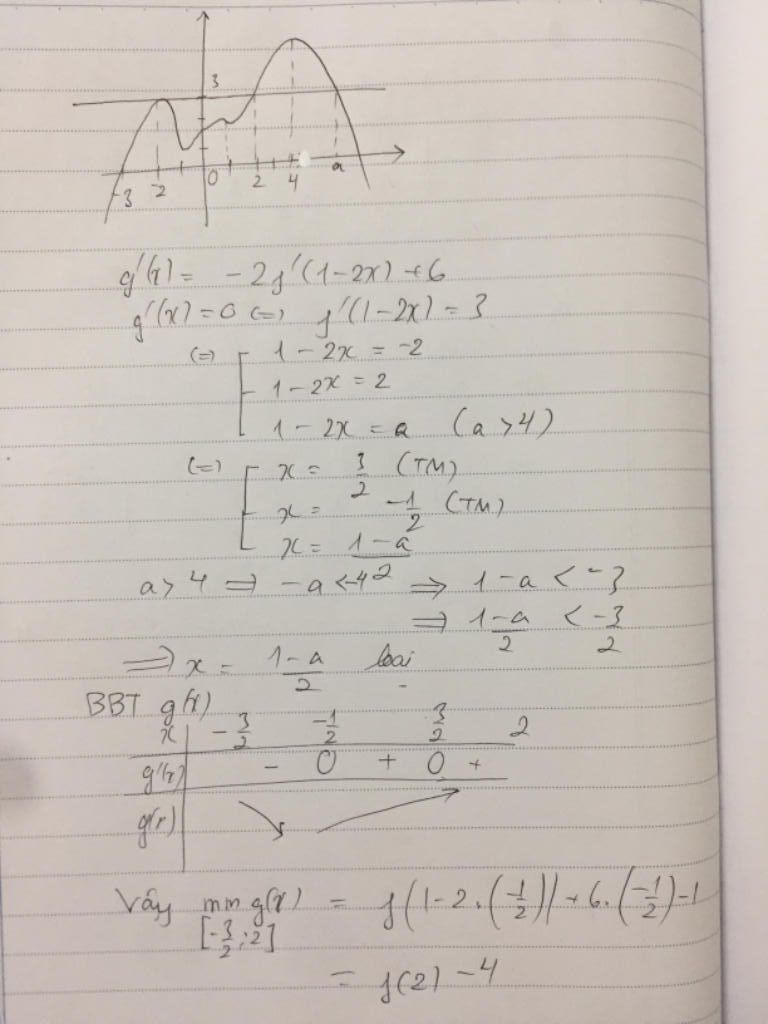 3
-3 -2 0 2 4 a
g'(x) = -2f'(1-2x) +6
g'(x) = 0 (=) f'(1-2x) = 3
(=) [ 1-2x = -2
1-2x = 2
1-2x = a (a > 4)
(=) [ x = 3/2 (TM)
x = -1/2 (TM)
x = (1-a)/2
a > 4 => -a < -4 => 1-a < -3
=> (1-a)/2 < -3/2
=> x = (1-a)/2 loại
BBT g(x)
x | -3/2 -1/2 3/2 2
g'(x) | - 0 + 0 +
g(x)
Vậy min g(x) = f(1-2.(-1/2)) + 6.(-1/2) -1
[-3/2; 2]
= f(2) - 4